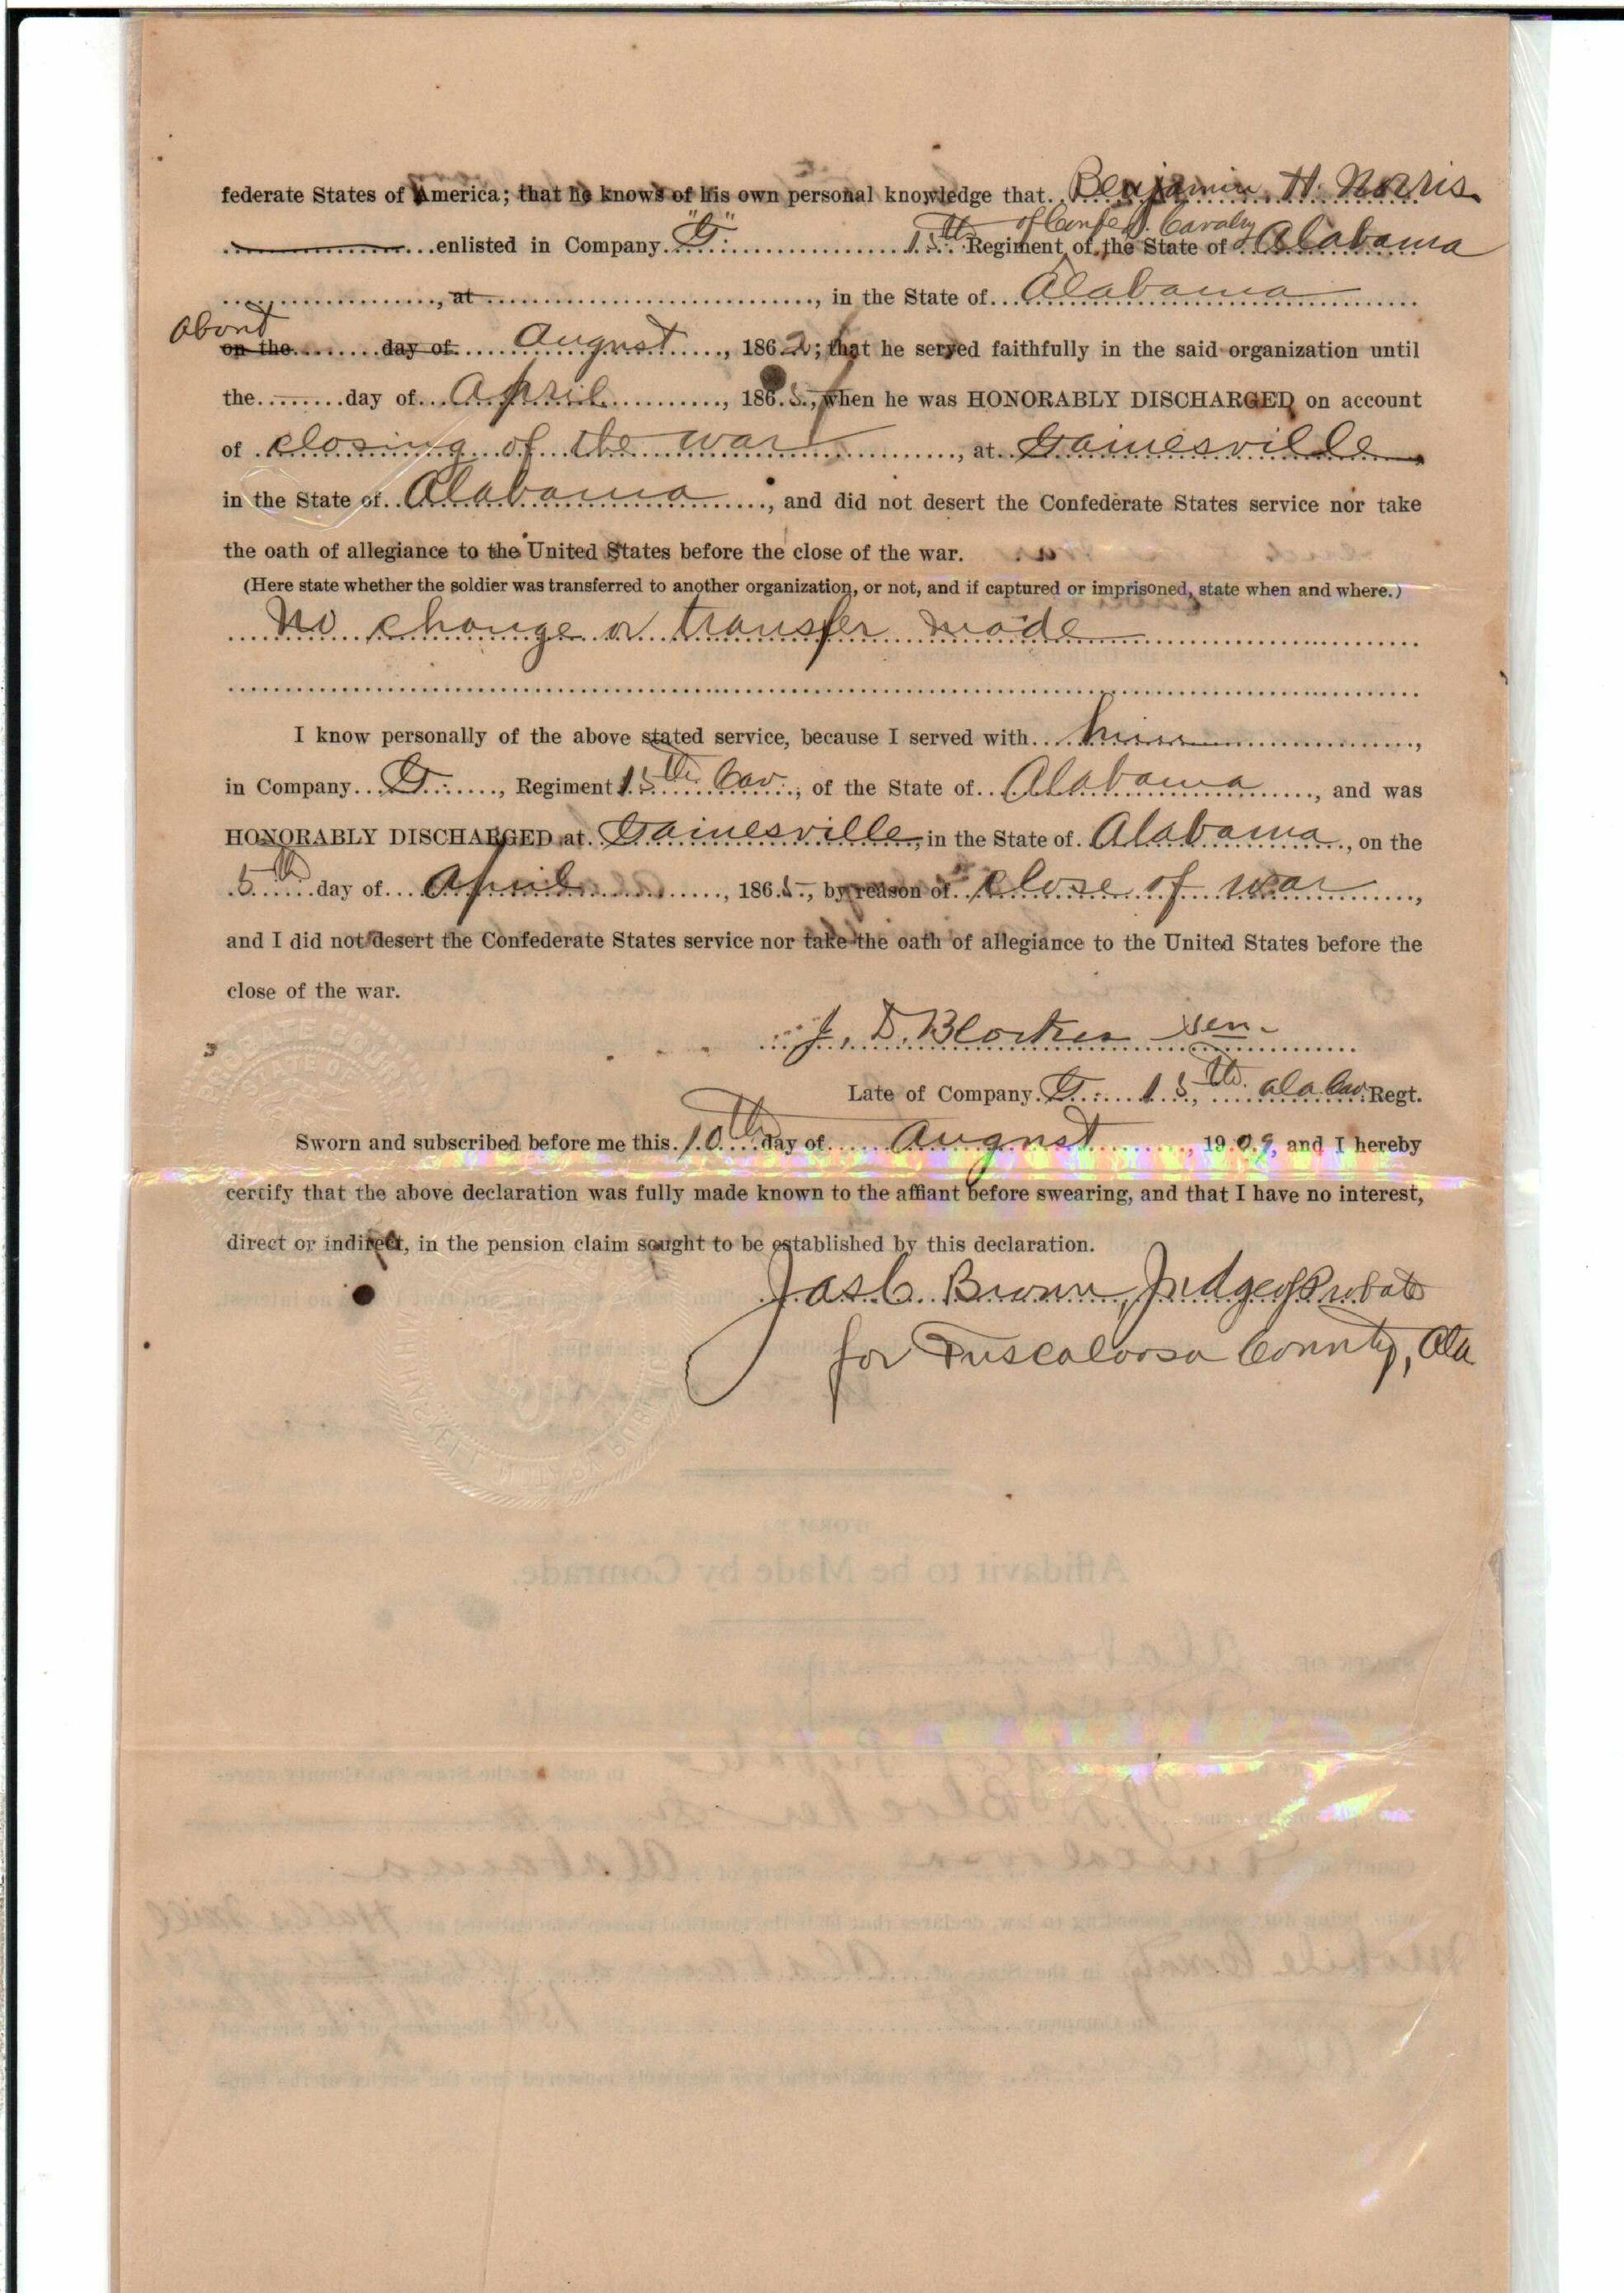 federate States of America; that he knows of his own personal knowledge that Benjamin H. Norris
enlisted in Company "G" 15th Regiment of Confed. Cavalry of the State of Alabama
, at , in the State of Alabama
About
on the day of August, 1862; that he served faithfully in the said organization until
the day of April, 1865, when he was HONORABLY DISCHARGED on account
of closing of the war, at Gainesville
in the State of Alabama, and did not desert the Confederate States service nor take
the oath of allegiance to the United States before the close of the war.
(Here state whether the soldier was transferred to another organization, or not, and if captured or imprisoned, state when and where.)
No change or transfer made
I know personally of the above stated service, because I served with him,
in Company G, Regiment 15th Cav., of the State of Alabama, and was
HONORABLY DISCHARGED at Gainesville, in the State of Alabama, on the
5th day of April, 1865, by reason of close of war,
and I did not desert the Confederate States service nor take the oath of allegiance to the United States before the
close of the war.
J. D. Blocker Sen.
Late of Company G 15th Ala Cav. Regt.
Sworn and subscribed before me this 10th day of August, 1909, and I hereby
certify that the above declaration was fully made known to the affiant before swearing, and that I have no interest,
direct or indirect, in the pension claim sought to be established by this declaration.
Jas C. Brown, Judge of Probate
for Tuscaloosa County, Ala